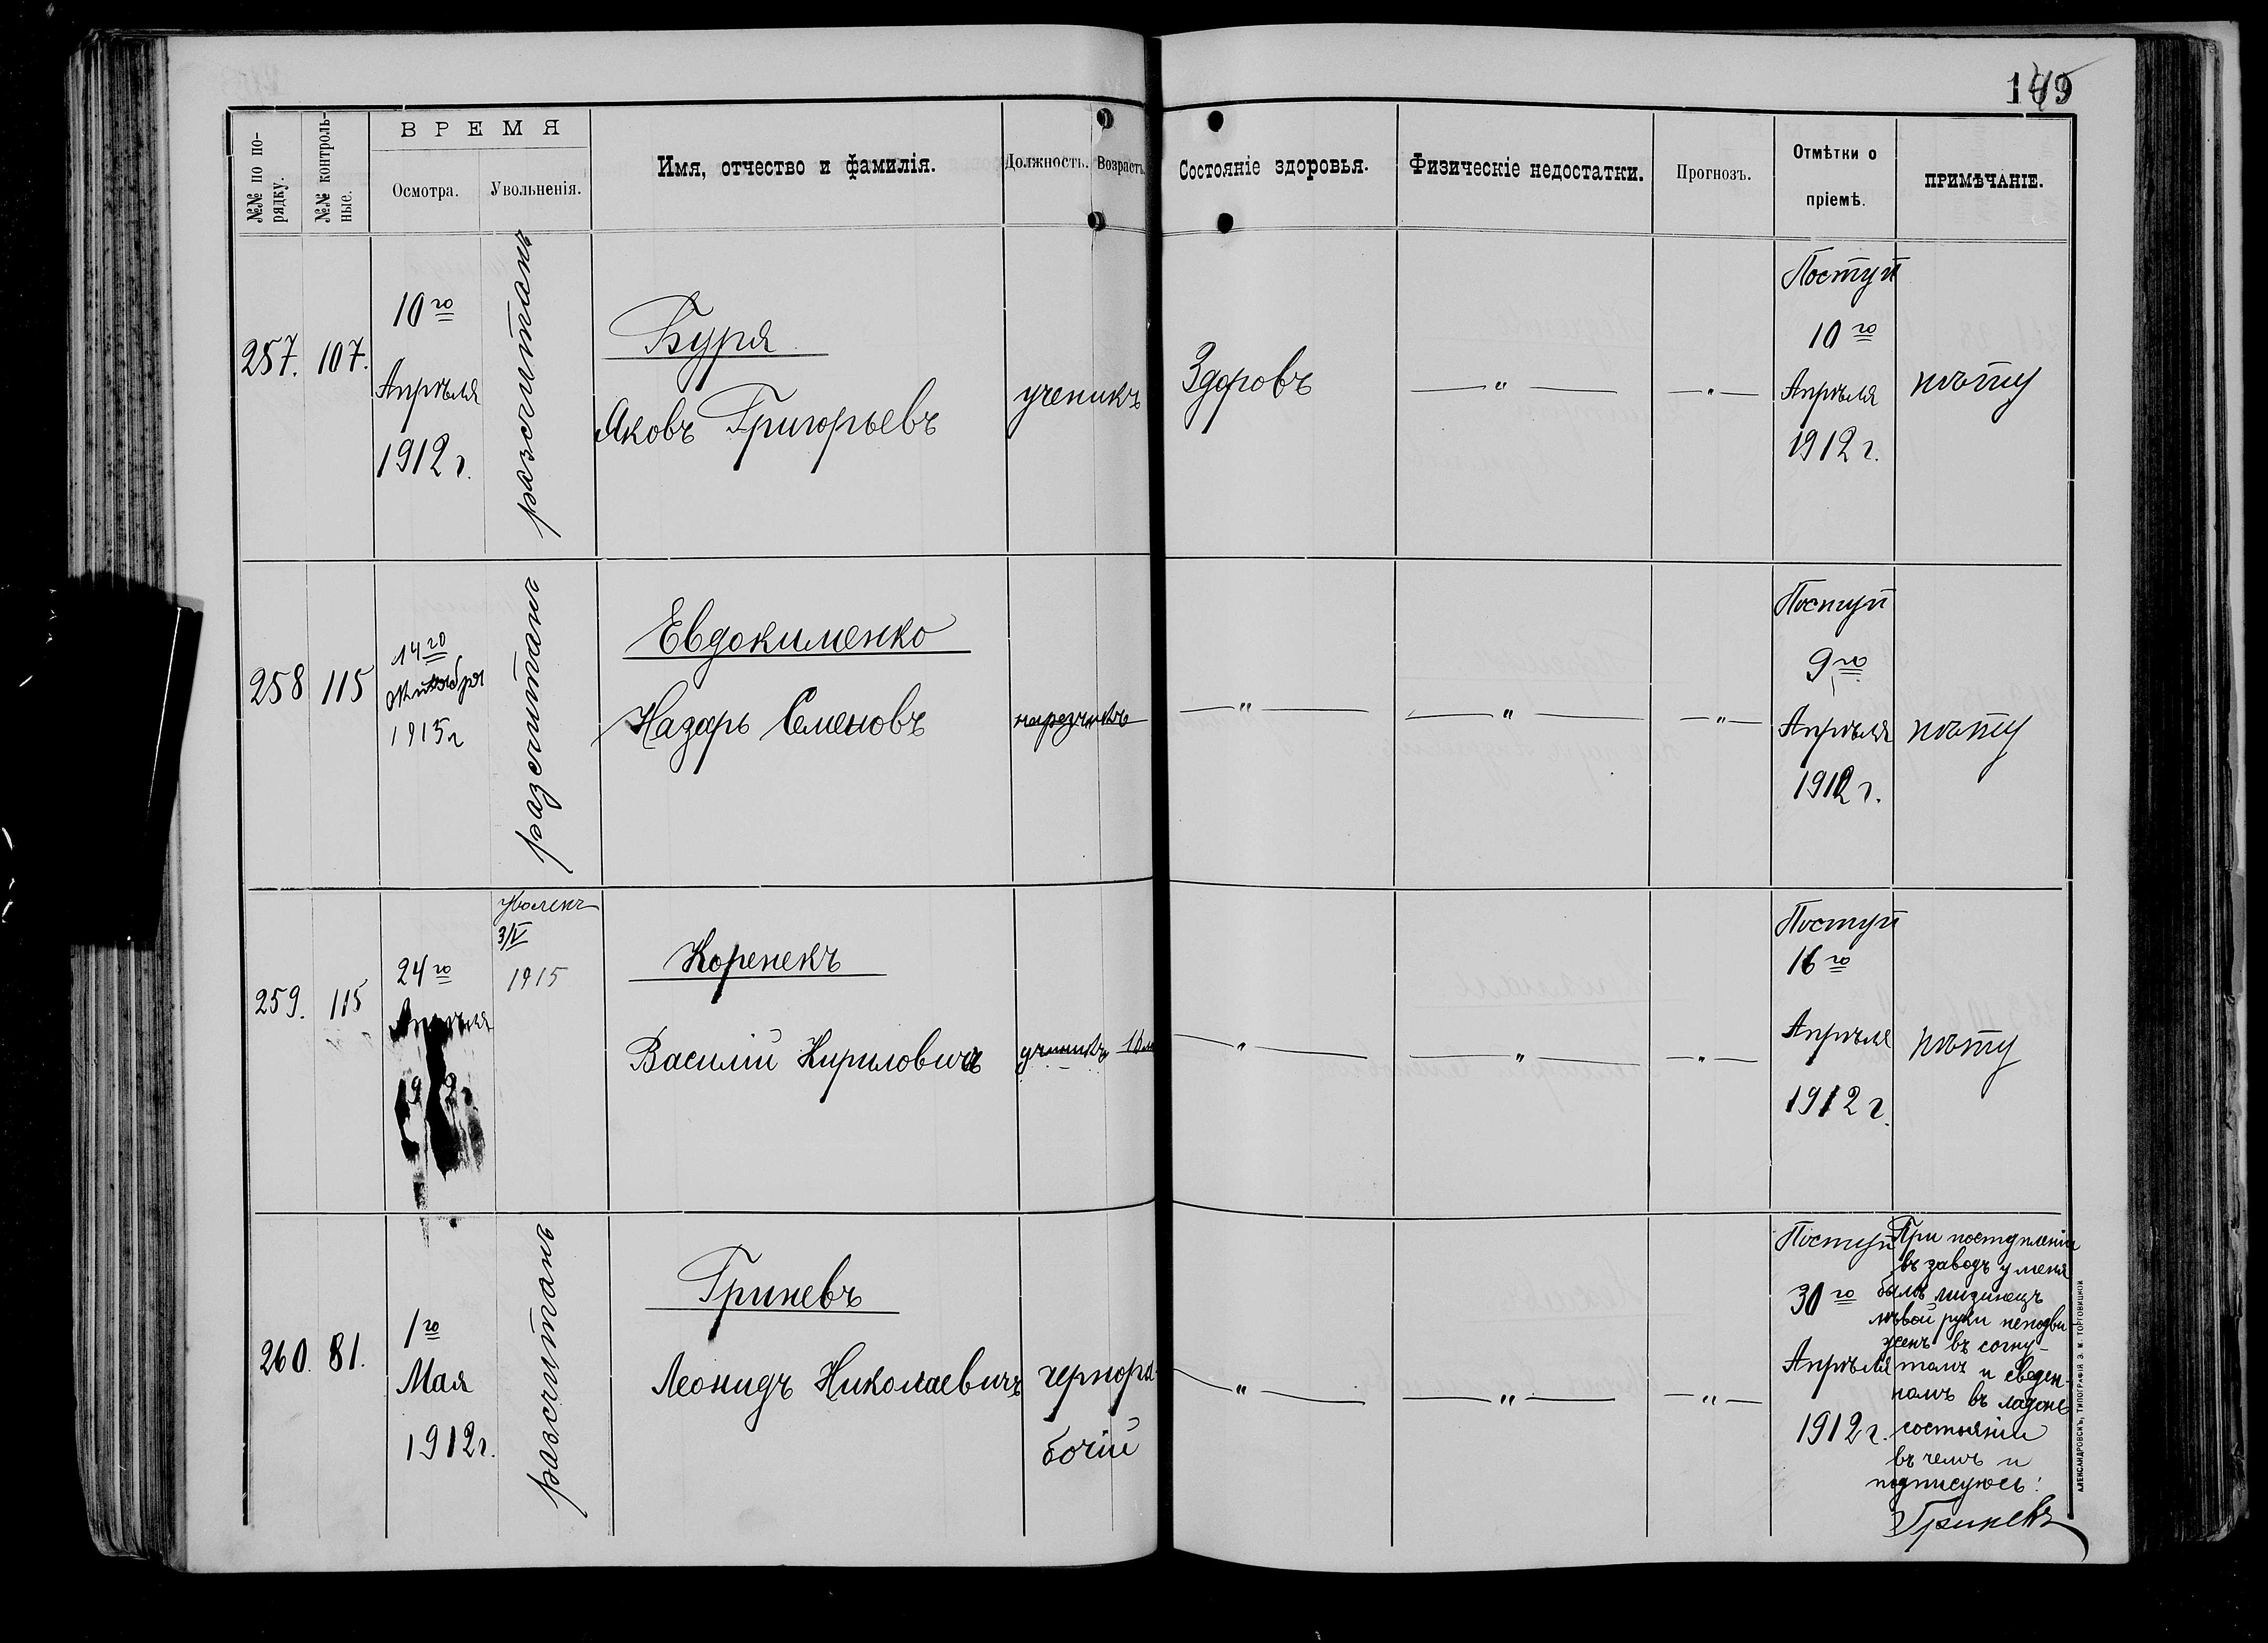 149
№№ по по-
рядку.
№№ контроль-
ные.
ВРЕМЯ
Осмотра.
Увольненія.
Имя, отчество и фамилія.
Должность.
Возрастъ.
Состояніе здоровья.
Физическіе недостатки.
Прогнозъ.
Отмѣтки о
пріемѣ.
ПРИМѢЧАНІЕ.
257.
107.
10го
Апрѣля
1912 г.
разсчитанъ
Буря
Яковъ Григорьевъ
ученикъ
Здоровъ
— " —
— " —
Поступ
10го
Апрѣля
1912 г.
нѣту
258
115
14го
1913г
разсчитанъ
Евдокименко
Назаръ Семеновъ
нарезчикъ
— " —
— " —
— " —
Поступ
9го
Апрѣля
1912 г.
нѣту
259.
115
24го
Апрѣля
1912 г
уволенъ
3/V
1915
Коренекъ
Василій Кириловичъ
ученикъ
— " —
— " —
— " —
Поступ
16го
Апрѣля
1912 г.
нѣту
260.
81.
1го
Мая
1912г.
разсчитанъ
Гриневъ
Леонидъ Николаевичъ
чернора-
бочій
— " —
— " —
— " —
Поступ
30го
Апрѣля
1912 г.
При поступленіи
въ заводъ у меня
былъ мизинецъ
лѣвой руки неподви-
женъ въ согну-
томъ и сведен-
номъ въ ладонѣ
состояніи
въ чемъ и
подписуюсь:
Гриневъ
АЛЕКСАНДРОВСКЪ, ТИПОГРАФІЯ Э. М. ТОРГОВИЦКОЙ